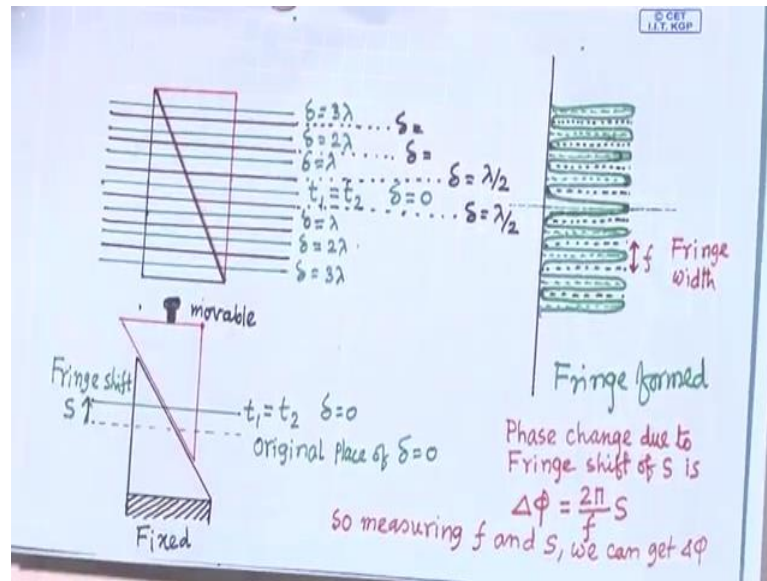 © CET
I.I.T. KGP
δ = 3λ
δ =
δ = 2λ
δ =
δ = λ
δ = λ/2
t₁ = t₂ δ = 0
δ = λ/2
δ = λ
δ = 2λ
δ = 3λ
f Fringe
width
Fringe formed
movable
Fringe shift
S
t₁ = t₂ δ = 0
Original place of δ = 0
Fixed
Phase change due to
Fringe shift of S is
Δφ = 2π/f S
So measuring f and S, we can get Δφ